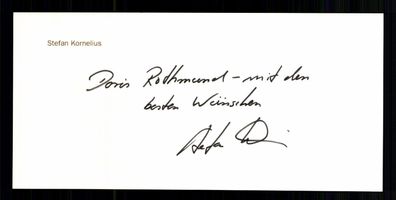 Stefan Kornelius
Doris Rothmund – mit den
besten Wünschen
Stefan